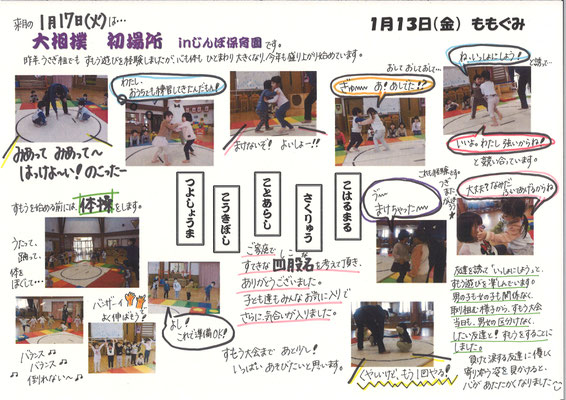 来月の 1月17日(火)は…
1月13日(金) ももぐみ
大相撲 初場所 inじんぼ保育園です。
わたし、
おうちでも練習してきたんだもん!
おして おして おして…
ぎゅ〜 あ!あしでた!?
ね、いっしょにしよう!
と誘って…
まけないぞ! よいしょー!!
いいよ。わたし 強いからね!
と競い合っています。
みあって みあって〜
はっけよ〜い! のこったー
すもうを始める前には、体操をします。
うたって、
踊って、
体を
ほぐして…
つよしょうま
こうきぼし
ことあらし
さくりゅう
こはるまる
うー
まけちゃった〜
これも経験です。
大丈夫?なみだ
ふいてあげるからね
ご家庭で
しこな
すてきな 四股名を考えて頂き、
ありがとうございました。
子ども達もみんなお気に入りで
さらに気合いが入りました。
すもう大会まで あと少し!
いっぱい あそびたいと思います。
バンザーイ
よく伸ばそう!
よし!
これで準備OK!
バランス♪
バランス♪
倒れない〜♪
くやしいけど、もう1回やる!
友達を誘って「いっしょにしよう」と、
すもう遊びを楽しんでいます。
男の子も女の子も関係なく
取り組む様子から、すもう大会
当日も、男女の区分けなく、
したい友達と!すもうをすることに
しました。
負けて涙する友達に優しく
寄り添う姿を見かけると、
心があたたかくなりました